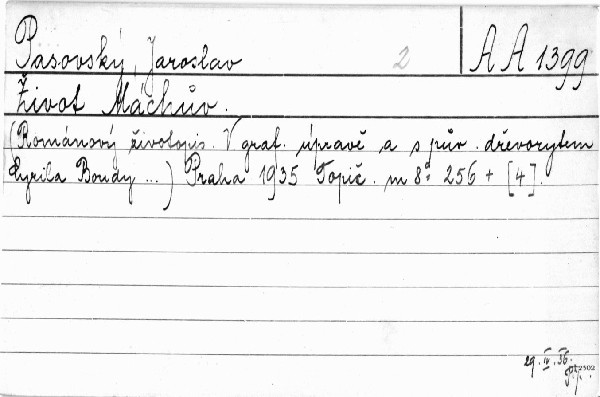 Pasovský, Jaroslav 2 AA 1399
Život Máchův.
(Románový životopis. V graf. úpravě a s pův. dřevorytem
Cyrila Boudy ...) Praha 1935 Topič. m 8° 256 + [4].
29. IV. 36.